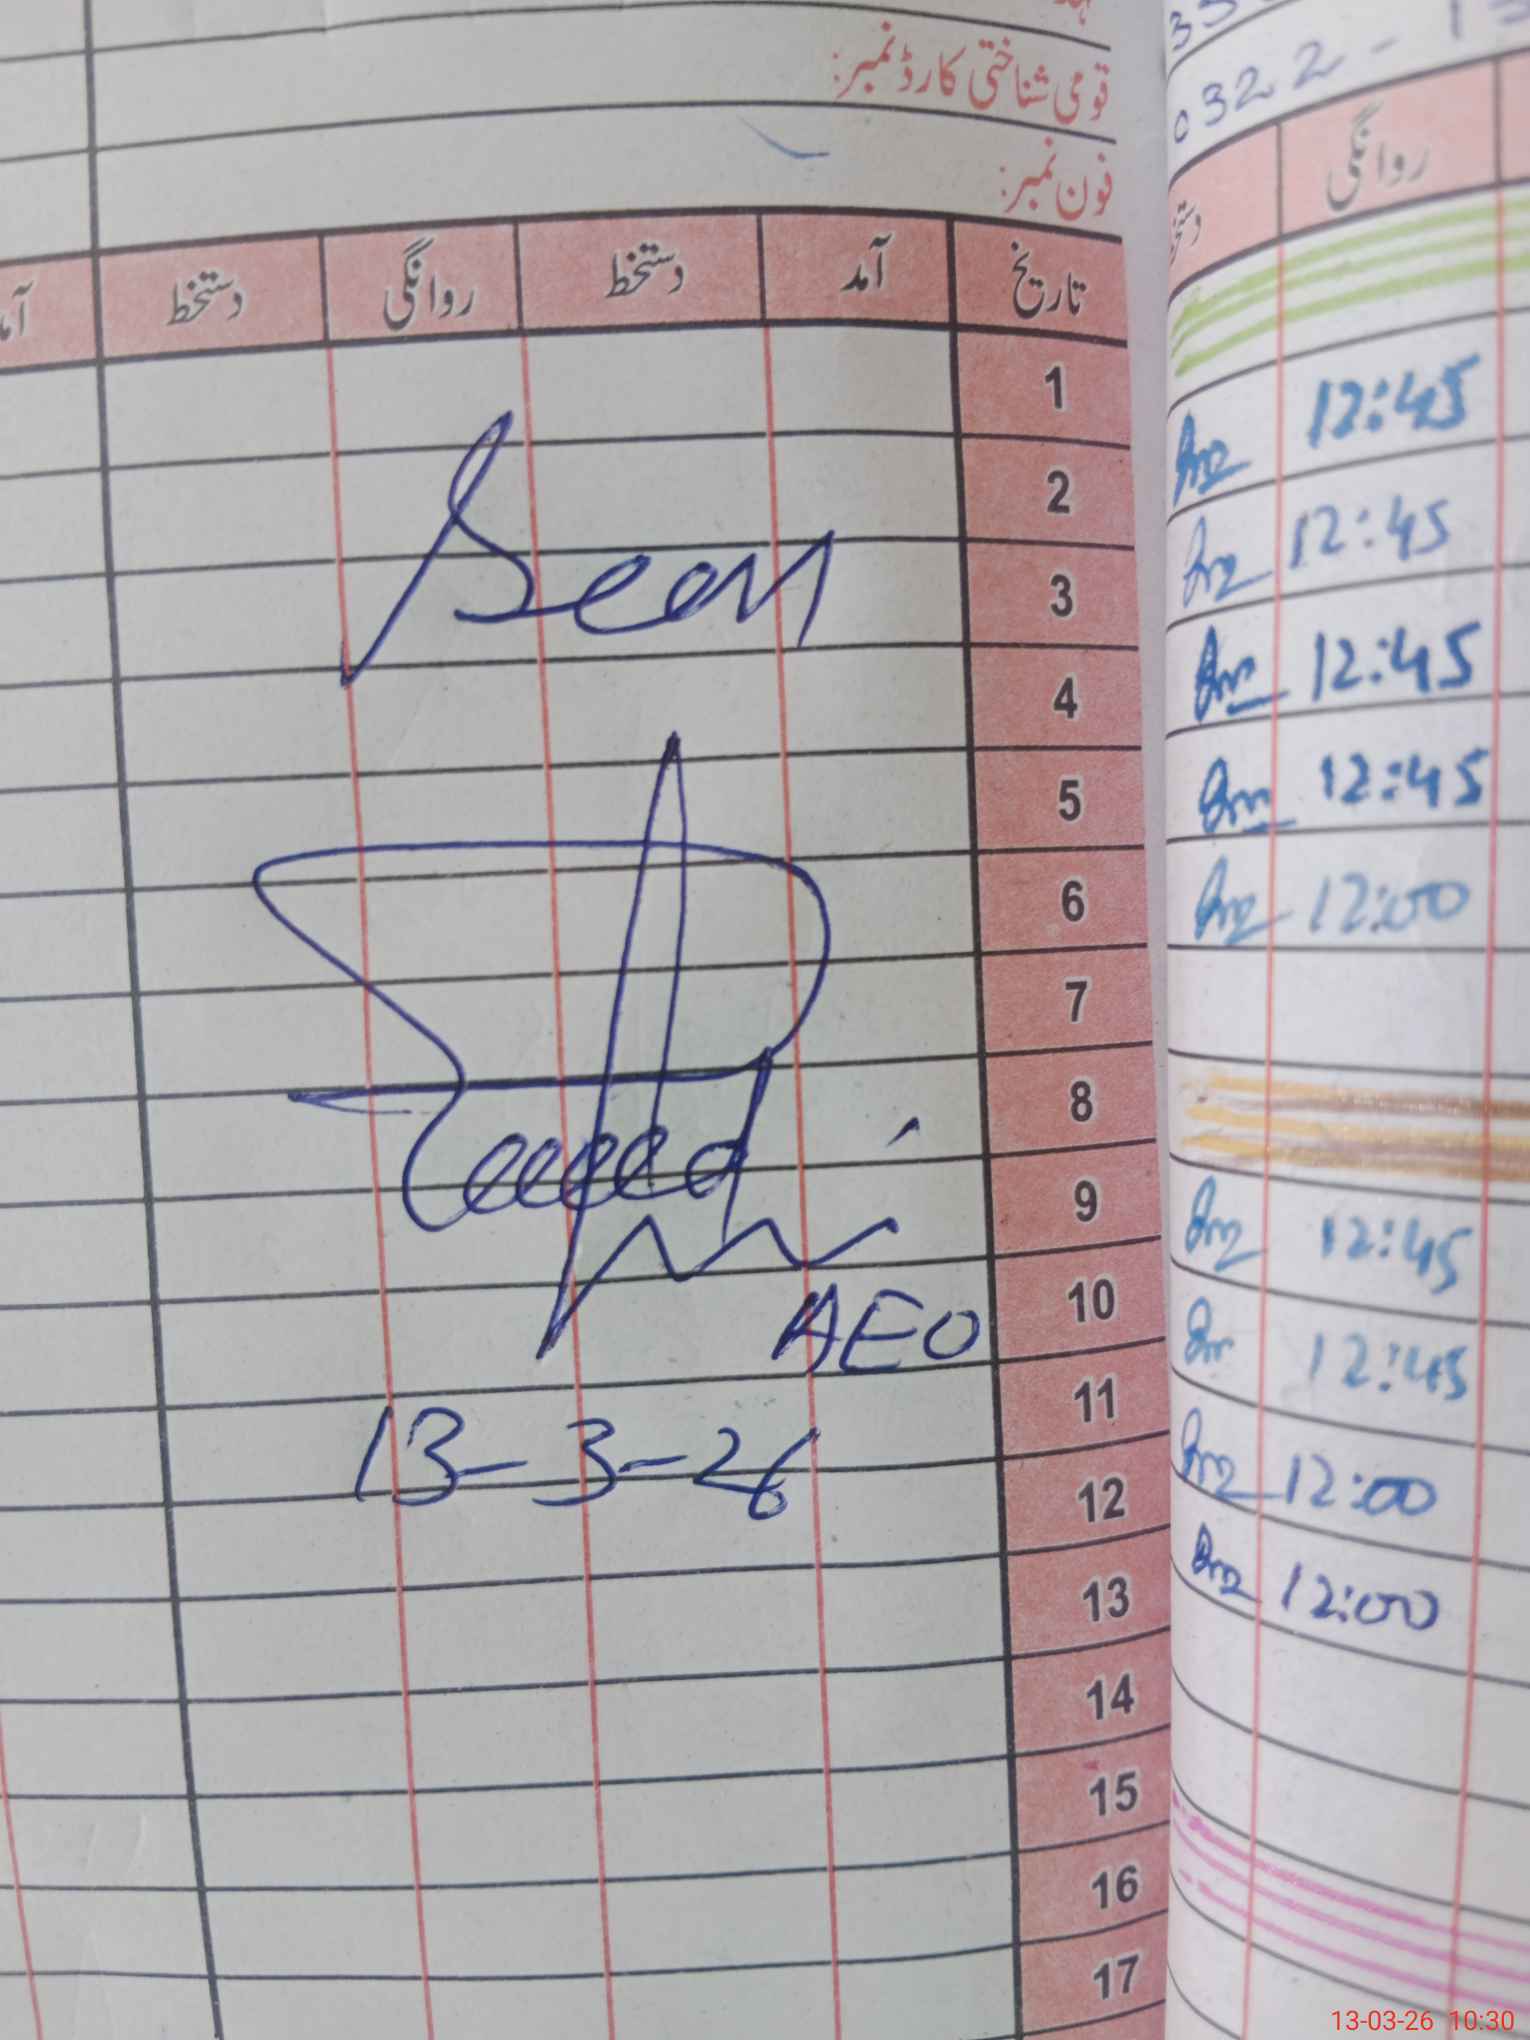 قومی شناختی کارڈ نمبر:
فون نمبر:
تاریخ آمد دستخط روانگی دستخط
1
2
3
4
5
6
7
8
9
10
11
12
13
14
15
16
17
Seen
AEO
13-3-26
0322-
روانگی
12:45
12:45
12:45
12:45
12:00
12:45
12:45
12:00
12:00
13-03-26 10:30